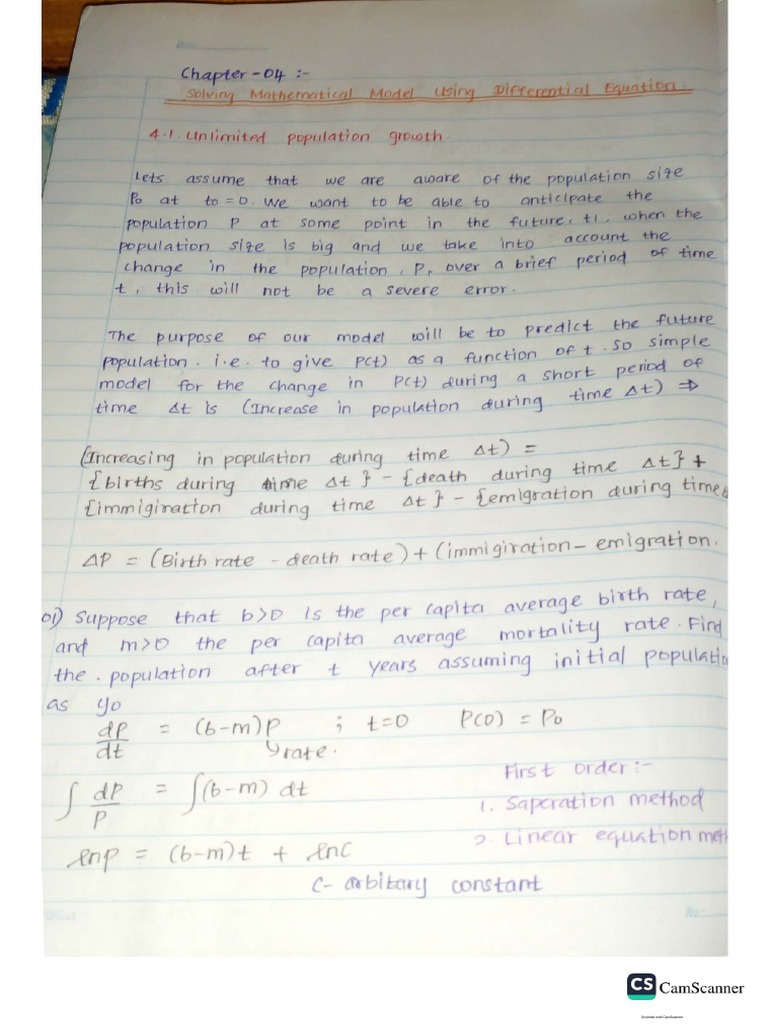 Date:
Chapter - 04 :-
Solving Mathematical Model Using Differential Equation.
4.1. Unlimited population growth.
Lets assume that we are aware of the population size
P₀ at t₀ = 0. We want to be able to anticipate the
population P at some point in the future, t1, when the
population size is big and we take into account the
change in the population, P, over a brief period of time
t, this will not be a severe error.
The purpose of our model will be to predict the future
population. i.e. to give P(t) as a function of t. So simple
model for the change in P(t) during a short period of
time Δt is (Increase in population during time Δt) ⇒
(Increasing in population during time Δt) =
{births during time Δt} - {death during time Δt} +
{immigiration during time Δt} - {emigration during time
ΔP = (Birth rate - death rate) + (immigiration - emigration.
01) Suppose that b>0 is the per capita average birth rate,
and m>0 the per capita average mortality rate. Find
the . population after t years assuming initial populatio
as y₀
dP/dt = (b-m)P ; t=0 P(0) = P₀
↳rate.
∫ dP/P = ∫(b-m) dt
First order :-
1. Saperation method
2. Linear equation meth
lnp = (b-m)t + lnc
C- arbitary constant
No:
CS CamScanner
Scanned with CamScanner